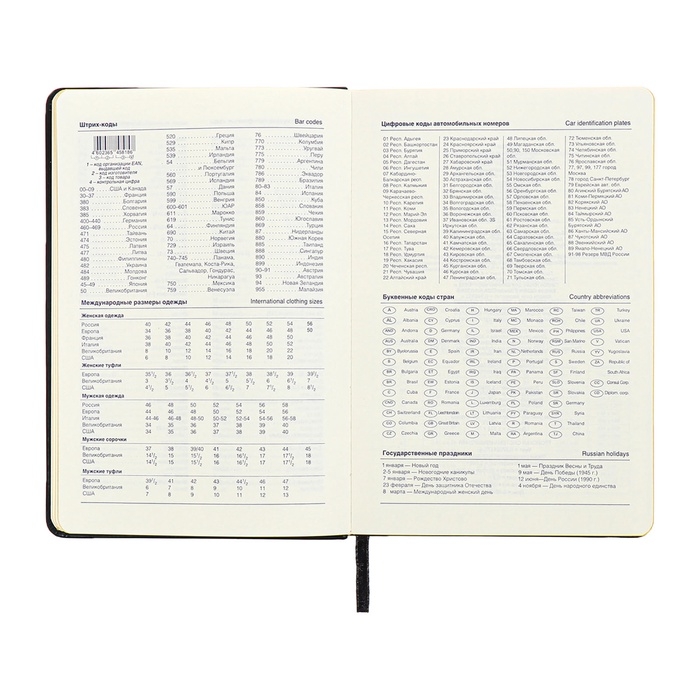 Штрих-коды Bar codes
4 602365 458186
1 – код организации EAN,
выдавшей код
2 – код изготовителя
3 – код товара
4 – контрольная цифра
00-09 США и Канада
30–37 Франция
380 Болгария
383 Словения
385 Хорватия
400-440 Германия
460-469 Россия
471 Тайвань
474 Эстония
475 Латвия
477 Литва
480 Филиппины
482 Украина
484 Молдова
489 Гонконг
45-49 Япония
50 Великобритания
520 Греция
529 Кипр
535 Мальта
539 Ирландия
54 Бельгия
и Люксембург
560 Португалия
569 Исландия
57 Дания
590 Польша
599 Венгрия
600-601 ЮАР
611 Марокко
619 Тунис
64 Финляндия
690 Китай
70 Норвегия
729 Израиль
73 Швеция
740-745 Панама,
Гватемала, Коста-Рика,
Сальвадор, Гондурас,
Никарагуа
750 Мексика
759 Венесуэла
76 Швейцария
770 Колумбия
773 Уругвай
775 Перу
779 Аргентина
780 Чили
786 Эквадор
789 Бразилия
80–83 Италия
84 Испания
850 Куба
858 Словакия
859 Чехия
860 Югославия
869 Турция
87 Нидерланды
880 Южная Корея
885 Таиланд
888 Сингапур
890 Индия
899 Индонезия
90–91 Австрия
93 Австралия
94 Новая Зеландия
955 Малайзия
Международные размеры одежды International clothing sizes
Женская одежда
Россия 40 42 44 46 48 50 52 54 56
Европа 34 36 38 40 42 44 46 48 50
Франция 36 38 40 42 44 46 48 50
Италия 38 40 42 44 46 48 50 52
Великобритания 8 10 12 14 16 18 20 22
США 6 8 10 12 14 16 18 20
Женские туфли
Европа
Великобритания
США
Мужская одежда
Россия 46 48 50 52 54 56 58
Европа 44 46 48 50 52 54 56
Италия 44-46 46-48 48-50 50-52 52-54 54-56 56-58
Великобритания 34 35 36 37 38 39 40
США 34 35 36 37 38 39 40
Мужские сорочки
Европа 37 38 39/40 41 42 43 44 45
Великобритания
США
Мужские туфли
Европа 39½ 41 42 43 44½ 46 47
Великобритания 6 7 8 9 10 11 12
США 7 8 9 10 11 12 13
Цифровые коды автомобильных номеров Car identification plates
01 Респ. Адыгея
02 Респ. Башкортостан
03 Респ. Бурятия
04 Респ. Алтай
05 Респ. Дагестан
06 Респ. Ингушетия
07 Кабардино-
Балкарская респ.
08 Респ. Калмыкия
09 Карачаево-
Черкесская респ.
10 Респ. Карелия
11 Респ. Коми
12 Респ. Марий-Эл
13 Респ. Мордовия
14 Респ. Саха
15 Респ. Северная
Осетия
16 Респ. Татарстан
17 Респ. Тыва
18 Респ. Удмуртия
19 Респ. Хакасия
20 Чеченская респ.
21 Респ. Чувашия
22 Алтайский край
23 Краснодарский край
24 Красноярский край
25 Приморский край
26 Ставропольский край
27 Хабаровский край
28 Амурская обл.
29 Архангельская обл.
30 Астраханская обл.
31 Белгородская обл.
32 Брянская обл.
33 Владимирская обл.
34 Волгоградская обл.
35 Вологодская обл.
36 Воронежская обл.
37 Ивановская обл. 38
Иркутская обл.
39 Калининградская обл.
40 Калужская обл.
41 Камчатская обл.
42 Кемеровская обл.
43 Кировская обл.
44 Костромская обл.
45 Курганская обл.
46 Курская обл.
47 Ленинградская обл.
48 Липецкая обл.
49 Магаданская обл.
50,90, 150 Московская
обл.
51 Мурманская обл.
52 Нижегородская обл.
53 Новгородская обл.
54 Новосибирская обл.
55 Омская обл.
56 Оренбургская обл.
57 Орловская обл.
58 Пензенская обл.
59 Пермская обл.
60 Псковская обл.
61 Ростовская обл.
62 Рязанская обл.
63 Самарская обл.
64 Саратовская обл.
65 Сахалинская обл.
66 Свердловская обл.
67 Смоленская обл.
68 Тамбовская обл.
69 Тверская обл.
70 Томская обл.
71 Тульская обл.
72 Тюменская обл.
73 Ульяновская обл.
74 Челябинская обл.
75 Читинская обл.
76 Ярославская обл.
77, 97, 99, 177 город
Москва
78 город Санкт-Петербург
79 Еврейская авт. обл.
80 Агинский Бурятский АО
81 Коми-Пермяцкий АО
82 Корякский АО
83 Ненецкий АО
84 Таймырский АО
85 Усть-Ордынский
Бурятский АО
86 Ханты-Мансийский АО
87 Чукотский АО
88 Эвенкийский АО
89 Ямало-Ненецкий АО
91-98 Резерв МВД России
Буквенные коды стран Country abbreviations
A Austria
AL Albania
AND Andorra
AUS Australia
BY Belarus
B Belgium
BG Bulgaria
BR Brasil
C Cuba
CND Canada
CH Switzerland
CO Columbia
CZ Czechia
CRO Croatia
CY Cyprus
D Germany
DM Denmark
E Spain
EC Ecuador
ET Egypt
EW Estonia
F France
FL Liechtenstein
GB Great Britain
GR Greece
H Hungary
I Italy
IL Israel
IND India
IR Iran
IRL Ireland
IRQ Iraq
IS Iceland
J Japan
L Luxemburg
LT Lithuania
LV Latvia
M Malta
MA Marocco
MC Monaco
MEX Mexico
N Norway
NL Netherlands
P Portugal
PA Panama
PE Peru
PAK Pakistan
PL Poland
PY Paraguay
R Romania
RA Argentina
RC Taiwan
RCH Chile
RP Philippines
RSM San Marino
RUS Russia
S Sweden
SF Finland
SLO Slovenia
SK Slovakia
D Germany
SYR Syria
T Thailand
TJ China
TR Turkey
UA Ukraine
USA USA
V Vatican
YU Yugoslavia
ZA Republic of
South Africa
CC Consul Corp.
CD Diplom. corp.
Государственные праздники Russian holidays
1 января — Новый год
2-5 января — Новогодние каникулы
7 января — Рождество Христово
23 февраля — День защитника Отечества
8 марта — Международный женский день
1 мая — Праздник Весны и Труда
9 мая — День Победы (1945 г.)
12 июня—День России (1990 г.)
4 ноября — День народного единства